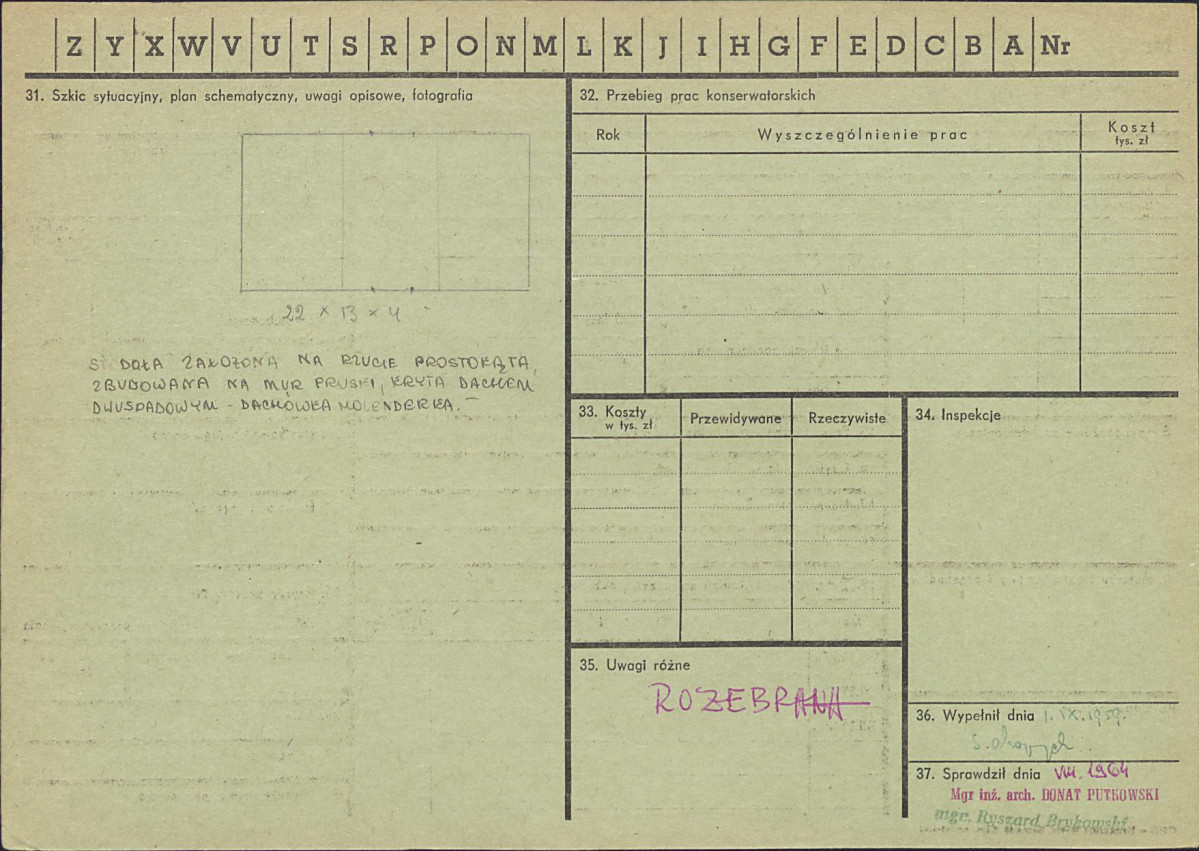 Z Y X W V U T S R P O N M L K J I H G F E D C B A Nr
31. Szkic sytuacyjny, plan schematyczny, uwagi opisowe, fotografia
22 × 13 × 4
STODOŁA ZAŁOŻONA NA RZUCIE PROSTOKĄTA,
ZBUDOWANA NA MUR PRUSKI, KRYTA DACHEM
DWUSPADOWYM - DACHÓWKA HOLENDERKA. -
32. Przebieg prac konserwatorskich
Rok Wyszczególnienie prac Koszt
tys. zł
33. Koszty Przewidywane Rzeczywiste
w tys. zł
34. Inspekcje
35. Uwagi różne
ROZEBRANA
36. Wypełnił dnia 1. IX. 1959.
37. Sprawdził dnia VIII. 1964
Mgr inż. arch. DONAT PUTKOWSKI
mgr. Ryszard Brykowski